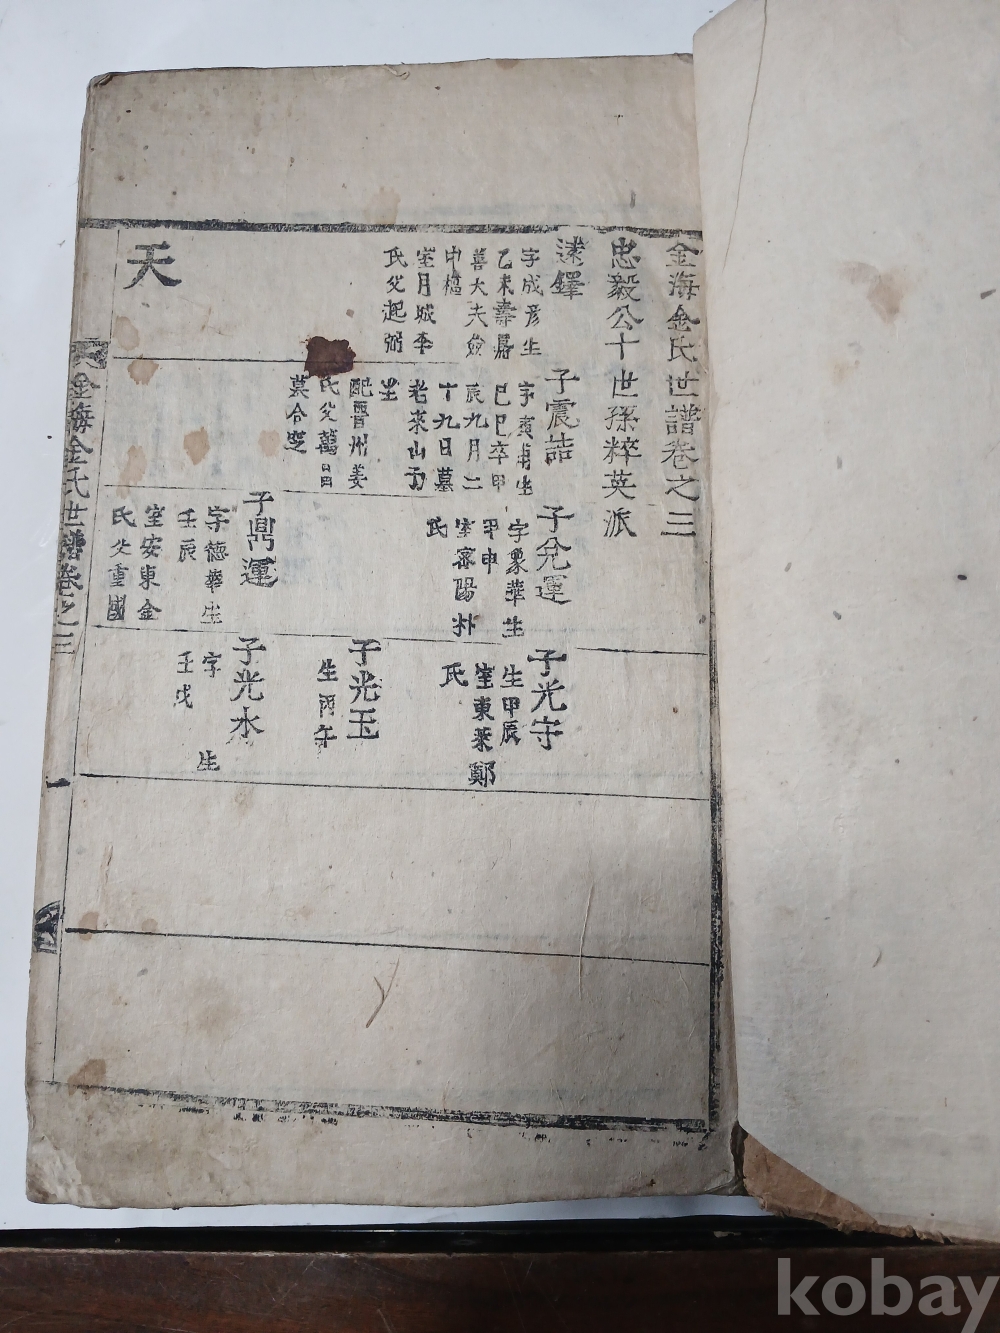 金海金氏世譜卷之三
忠毅公十世孫粹英派
逑鐸
字成彦生
乙未壽嘉
善大夫僉
中樞
室月城李
氏父起弼
天
子震喆
字寅甫生
己巳卒甲
辰九月二
十九日墓
老來山予
坐
配晋州姜
氏父萬昌
墓合窆
子兌運
字象華生
甲申
室密陽朴
氏
子鼎運
字德華生
壬辰
室安東金
氏父重國
子光守
生甲辰
室東萊鄭
氏
子光玉
生丙午
子光水
字 生
壬戌
金海金氏世譜卷之三
一
kobay